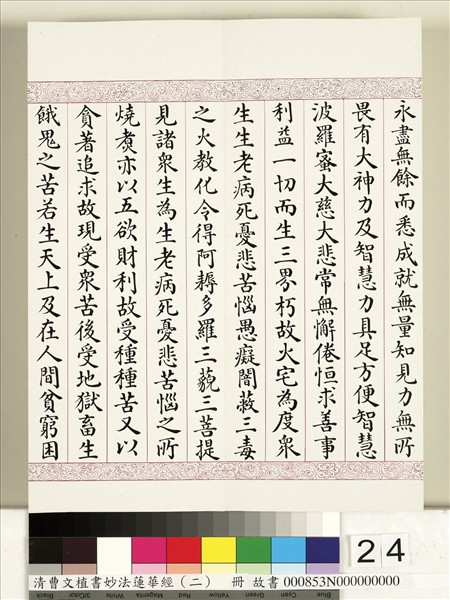 永盡無餘而悉成就無量知見力無所
畏有大神力及智慧力具足方便智慧
波羅蜜大慈大悲常無懈倦恒求善事
利益一切而生三界朽故火宅為度衆
生生老病死憂悲苦惱愚癡闇蔽三毒
之火教化令得阿耨多羅三藐三菩提
見諸衆生為生老病死憂悲苦惱之所
燒煑亦以五欲財利故受種種苦又以
貪著追求故現受衆苦後受地獄畜生
餓鬼之苦若生天上及在人間貧窮困
24
Black 3/Color White Magenta Red Yellow Green Cyan Blue
清曹文植書妙法蓮華經（二） 冊 故書 000853N000000000